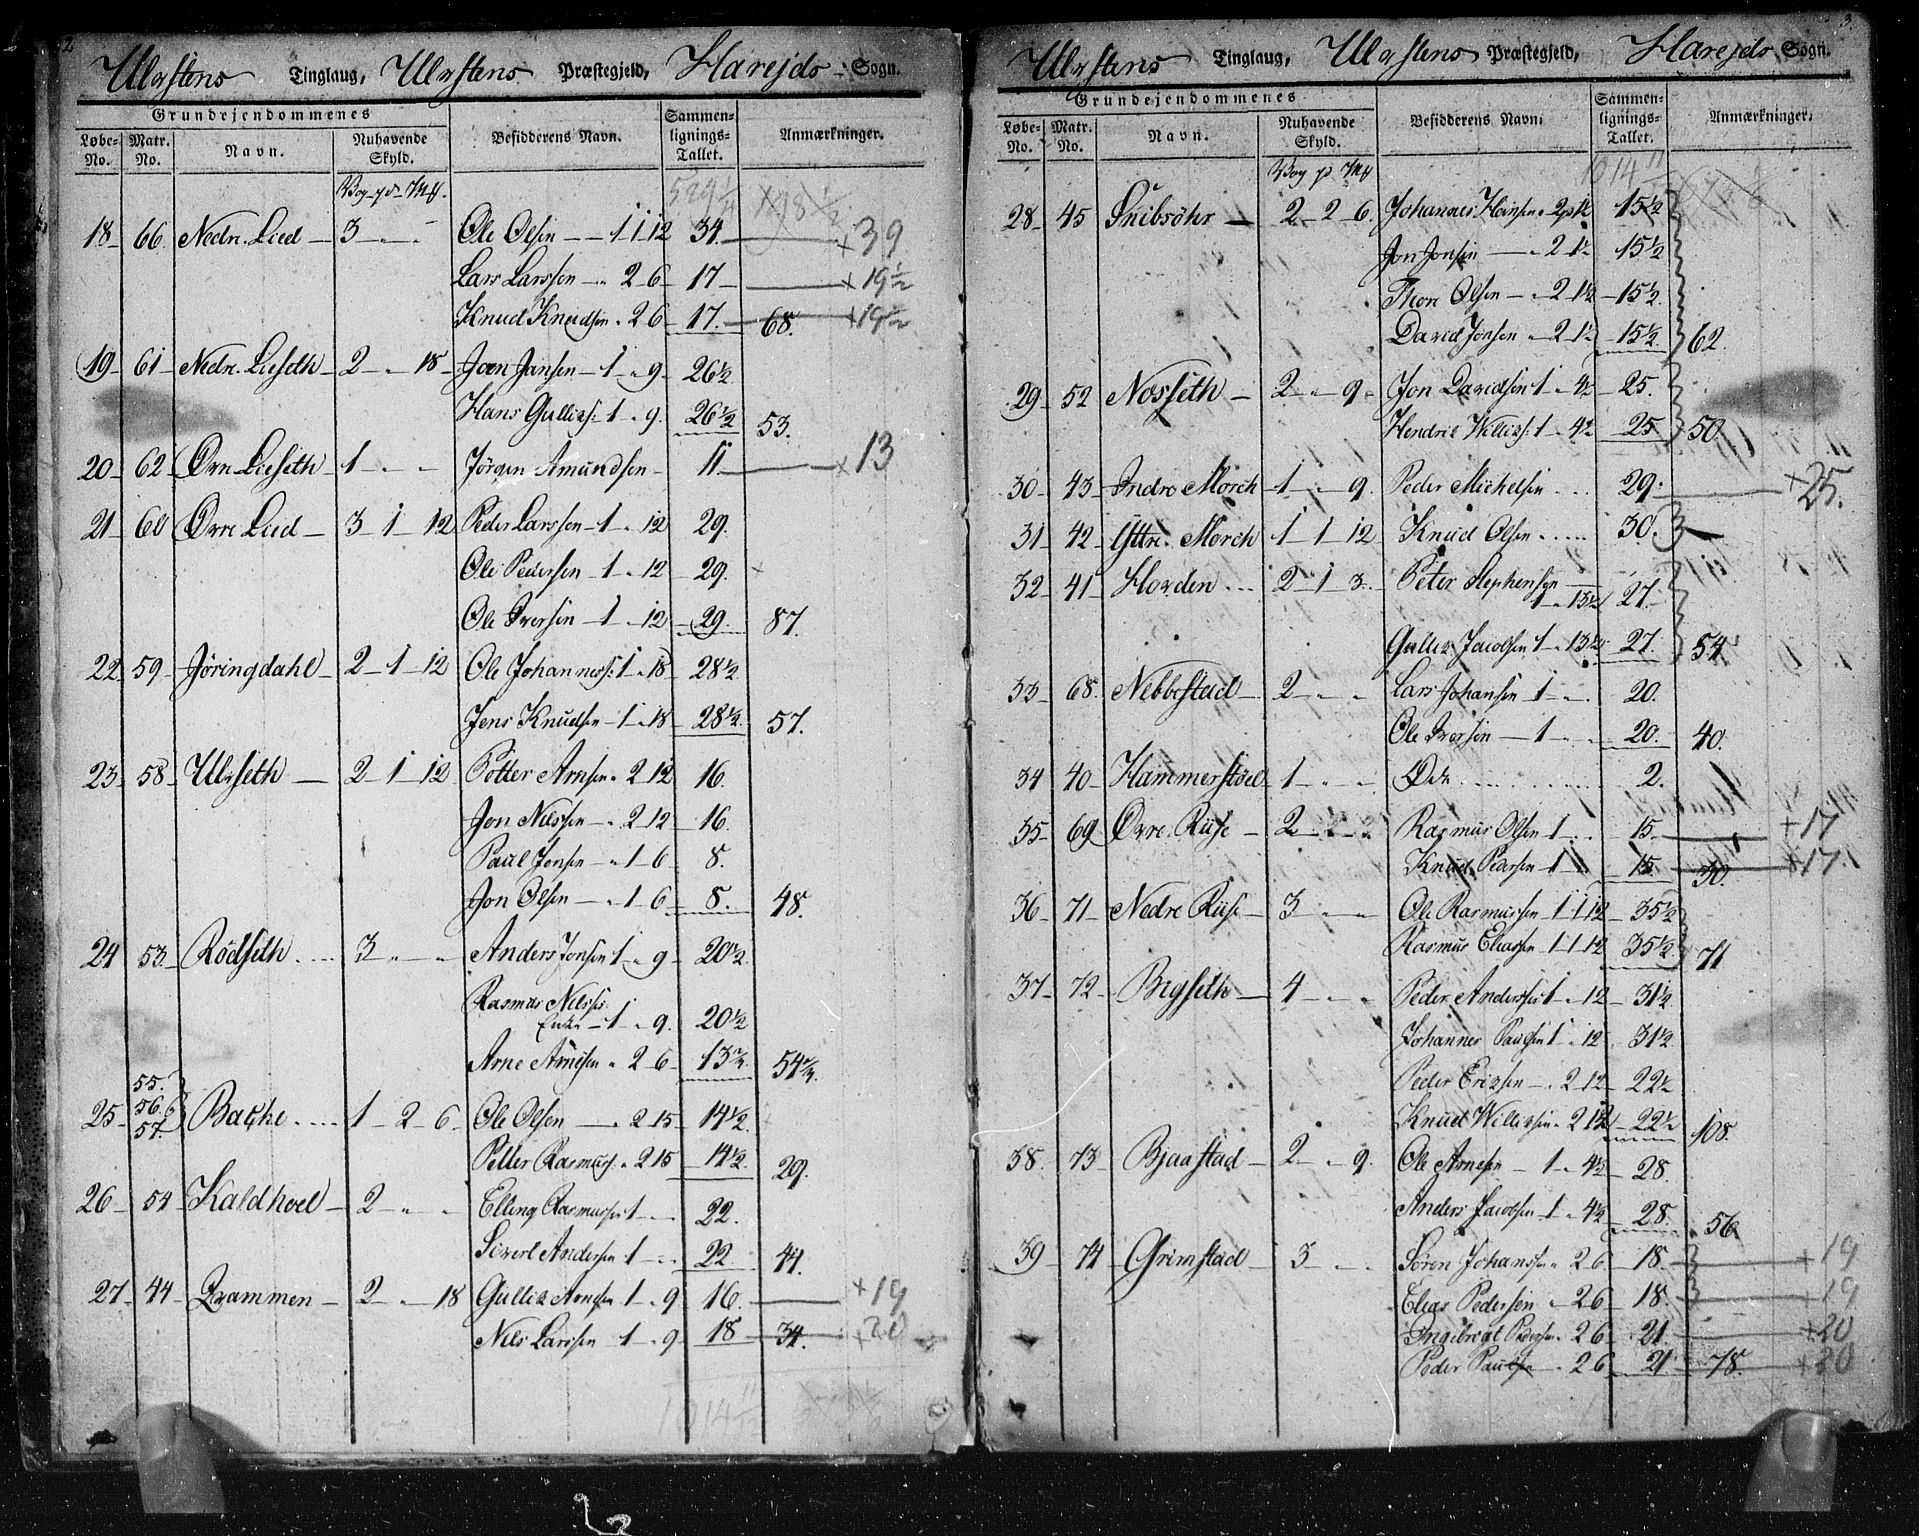 2
Ulvstens Tinglaug, Ulvstens Præstegjeld, Harejds Sogn.
Grundejendommenes
Løbe-No. Matr. No. Navn. Nuhavende Skyld. Besidderens Navn. Sammenlignings-Tallet. Anmærkninger.
Vog pd Mk
18 66 Nedre Lied 3 " " Ole Olsen 1 1 12 34. × 39
Lars Larssen " 2 6 17 × 19½
Knud Knudsen " 2 6 17. 68. × 19½
19 61 Nedre Lieseth 2 " 18 Joen Jansen 1 " 9 26½
Hans Gulliks: 1 " 9. 26½ 53.
20 62 Øvre Lieseth 1 " " Jörgen Amundsen 11 × 13
21 60 Øvre Lied 3 1 12 Peder Larssen 1 " 12 29.
Ole Pedersen 1 " 12 29.
Ole Iversen 1 " 12 29. 87.
22 59 Jøringdahl 2 1 12 Ole Johanness: 1 " 18 28½
Jens Knudsen 1 " 18 28½. 57.
23 58 Ulvseth 2 1 12 Petter Arnsen " 2 12 16.
Jon Nilssen " 2 12 16.
Paul Jonsen " 1 6 8.
Jon Olsen " 1 6 8. 48.
24 53 Rödseth 3 " " Anders Jonsen 1 " 9 20½
Rasmus Nilss: Enke 1 " 9. 20½
Arne Arnesen " 2 6 13⅔. 54⅔.
25 55. 56. 57. Bache 1 2 6 Ole Olsen " 2 15 14½.
Petter Rasmuss. " 2 15 14½. 29.
26 54 Kaldhoel 2 " " Elling Rasmussen 1 " " 22.
Sivert Andersen 1 " " 22 44.
27 44 Qvammen 2 " 18 Gullik Arnesen 1 " 9 16. × 19
Nils Larssen 1 " 9 18 34. × 20
1014
3
Ulvstens Tinglaug, Ulvstens Præstegjeld, Harejds Sogn.
Grundejendommenes
Løbe-No. Matr. No. Navn. Nuhavende Skyld. Besidderens Navn. Sammenlignings-Tallet. Anmærkninger.
Vog p Mk 1014
28 45 Snibsöhr 2 2 6. Johannes Hansen " 2 1½ 15½
Jon Jonsen " 2 1½ 15½
Thore Olsen " 2 1½ 15½.
David Jonsen " 2 1½ 15½. 62.
29 52 Nosseth 2 " 9 Jon Davidsen 1 " 4½ 25.
Hendrik Williks: 1 " 4½ 25 50.
30 43 Indre Mörch 1 " 9. Peder Michelsen 29. × 25.
31 42 Yttre Mörch 1 1 12 Knud Olsen 30. 3
32 41 Hovden 2 1 3 Peter Stephensen 1 " 13½ 27.
Gullik Jacobsen 1 " 13½ 27. 54.
33 68. Nebbestad 2 " " Lars Johansen 1 " " 20.
Ole Iversen 1 " " 20. 40.
34 40 Hammerstoel 1 " " Öde 2.
35 69 Øvre Riise 2 " " Rasmus Olsen 1 " " 15. × 17
Knud Pedersen 1 15 30. × 17.
36 71 Nedre Riise 3 " " Ole Rasmussen 1 1 12 35½
Rasmus Eliassen 1 1 12 35½. 71
37 72 Bigseth 4 " " Peder Anderss: 1 " 12 31½
Johannes Paulsen 1 " 12 31½
Peder Eriksen " 2 12 22½
Knud Williksen " 2 12 22½ 108.
38. 73 Bjaastad 2 " 9. Ole Arnesen 1 " 4½ 28.
Anders Jacobsen 1 " 4½ 28. 56
39 74 Grimstad 3 " " Sören Johanss: " 2 6 18. × 19
Elias Pedersen " 2 6 18. × 19
Ingebrigt Peders: " 2 6 21 × 20
Peder Paulsen " 2 6 21 78. × 20